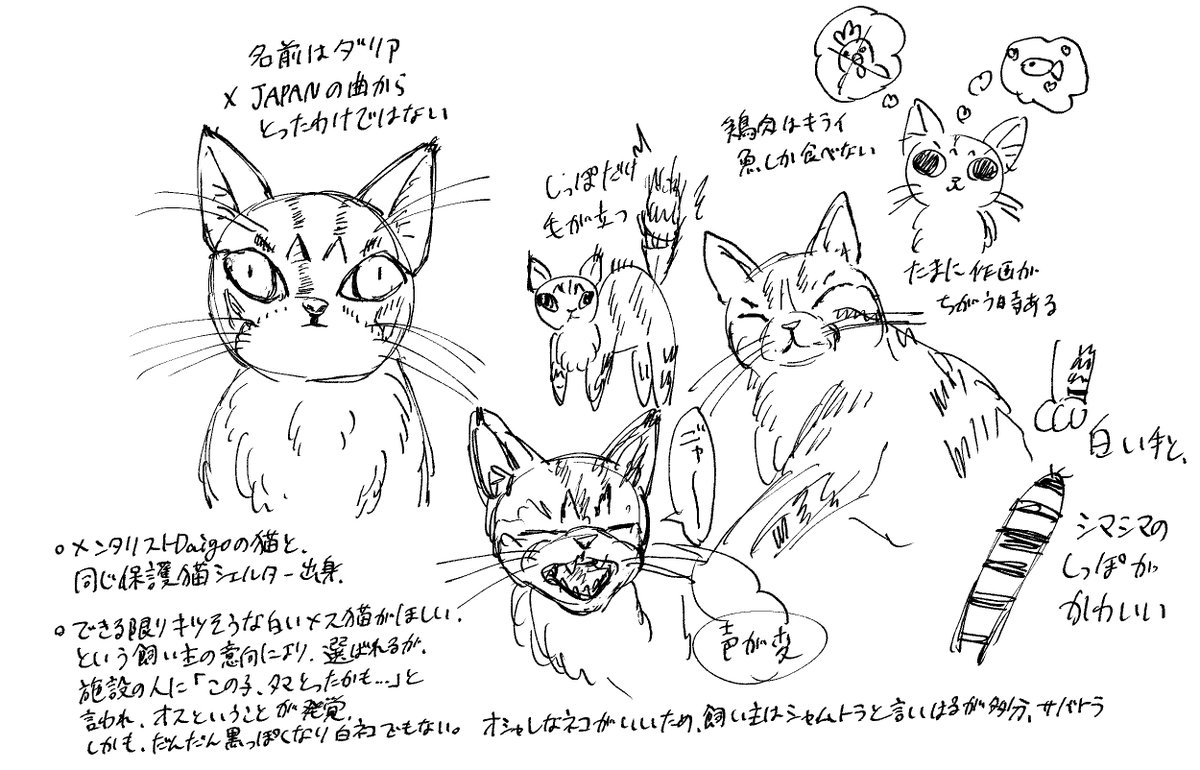 名前はダリア
X JAPANの曲から
とったわけではない
しっぽだけ
毛が立つ
鶏肉はキライ
魚しか食べない
たまに作画が
ちがう時ある
白い手と、
シマシマの
しっぽが
かわいい
ニャー
声が変
○メンタリストDaigoの猫と、
同じ保護猫シェルター出身.
○できる限りキツそうな白いメス猫がほしい.
という飼い主の意向により、選ばれるが、
施設の人に「この子、タマとったかも…」と
言われ、オスということが発覚.
しかも、だんだん黒っぽくなり白ネコでもない。
オシャレなネコがいいため、飼い主はシャムトラと言いはるが多分、サバトラ